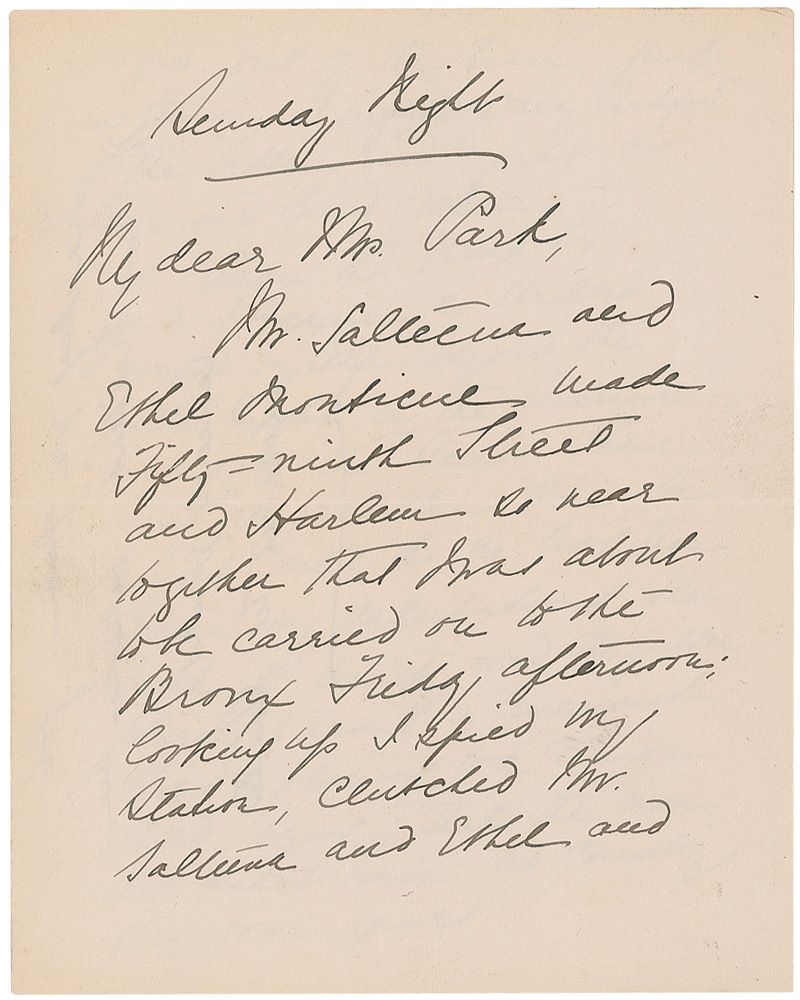 Sunday Night
My dear Mrs. Park,
Mr. Salteena and
Ethel Monticue made
Fifty=ninth Street
and Harlem so near
together that I was about
to be carried on to the
Bronx Friday afternoon;
looking up I spied my
station, clutched Mr.
Salteena and Ethel and